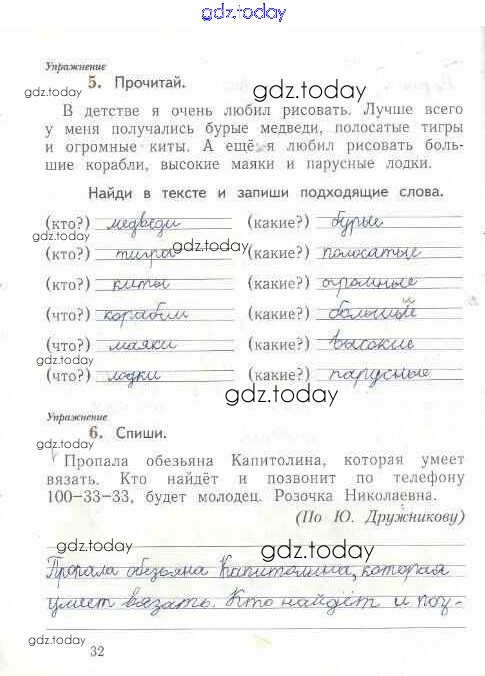 gdz.today
Упражнение
5. Прочитай.
gdz.today
gdz.today
В детстве я очень любил рисовать. Лучше всего
у меня получались бурые медведи, полосатые тигры
и огромные киты. А ещё я любил рисовать боль-
шие корабли, высокие маяки и парусные лодки.
gdz.today
gdz.today
Найди в тексте и запиши подходящие слова.
(кто?) медведи (какие?) бурые
gdz.today
gdz.today
(кто?) тигры (какие?) полосатые
(кто?) киты (какие?) огромные
(что?) корабли (какие?) большие
(что?) маяки (какие?) высокие
gdz.today
(что?) лодки (какие?) парусные
gdz.today
Упражнение
6. Спиши.
gdz.today
Пропала обезьяна Капитолина, которая умеет
вязать. Кто найдёт и позвонит по телефону
100-33-33, будет молодец. Розочка Николаевна.
(По Ю. Дружникову)
gdz.today
gdz.today
Пропала обезьяна Капитолина, которая
умеет вязать. Кто найдёт и поз-
gdz.today
32